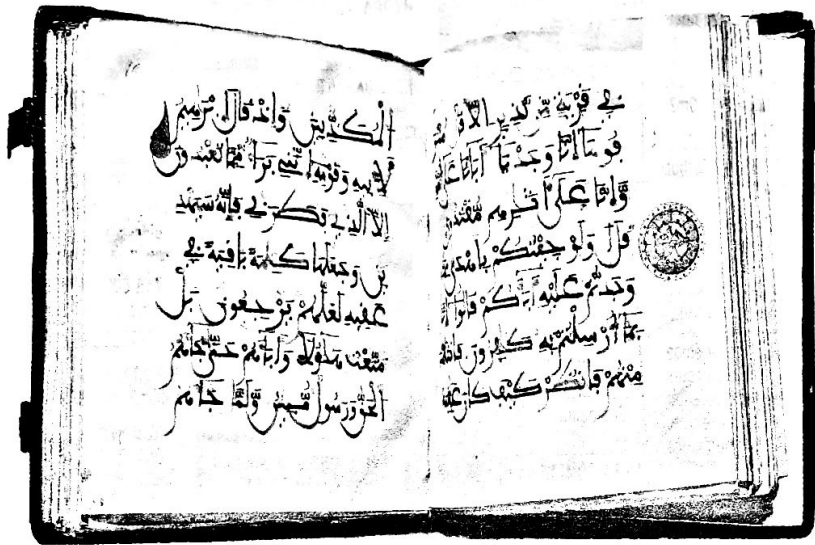 في قرية من نذير الا قال متر
فوها انا وجدنا ءاباءنا على
وانا على ءاثرهم مقتدون
قل اولو جئتكم باهدى
وجدتم عليه ءاباءكم قالوا انا
بما ارسلتم به كفرون فانتقمنا
منهم فانظر كيف كان عقبة
المكذبين واذ قال ابرهيم
لابيه وقومه انني براء مما تعبدون
الا الذي فطرني فانه سيهد
ين وجعلها كلمة باقية في
عقبه لعلهم يرجعون بل
متعت هؤلاء وءاباءهم حتى جاءهم
الحق ورسول مبين ولما جاءهم